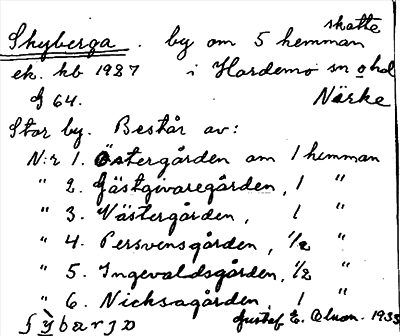 Skyberga. by om 5 hemman skatte
ek. kb 1927 i Hardemo sn o hd
g 64. Närke
Stor by. Består av:
N:r 1. Östergården om 1 hemman
" 2. Gästgivaregården, 1 "
" 3. Västergården, 1 "
" 4. Persvensgården, 1/2 "
" 5. Ingevaldsgården, 1/2 "
" 6. Nicksagården, 1 "
Gustaf E. Olson. 1933